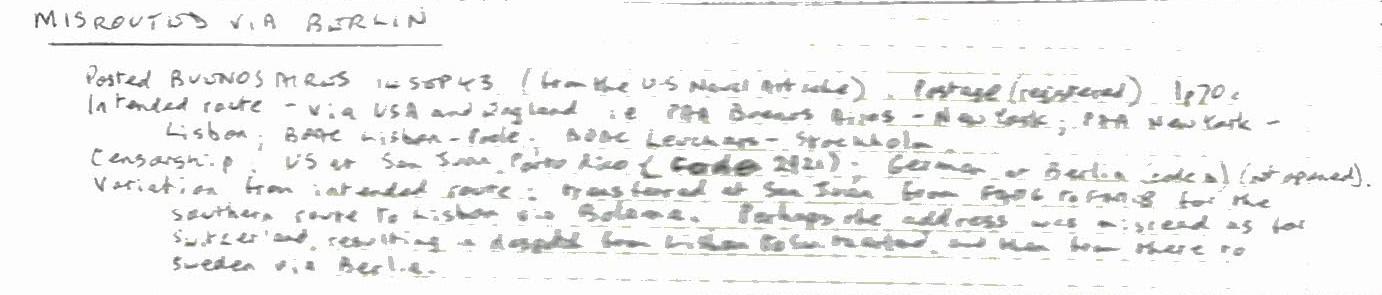 MISROUTED VIA BERLIN
Posted BUENOS AIRES 14 SEP 43 (from the U.S Naval Attache). Postage (registered) 1p70c
Intended route - via USA and England i.e PAA Buenos Aires - New York; PAA New York -
Lisbon; BOAC Lisbon - Poole; BOAC Leuchars - Stockholm
Censorship: US at San Juan, Porto Rico (Code); German at Berlin (code) (not opened).
Variation from intended route: transferred at San Juan from to for the
southern route to Lisbon via Bolama. Perhaps the address was misread as for
Switzerland, resulting in despatch from Lisbon to Switzerland, and then from there to
Sweden via Berlin.